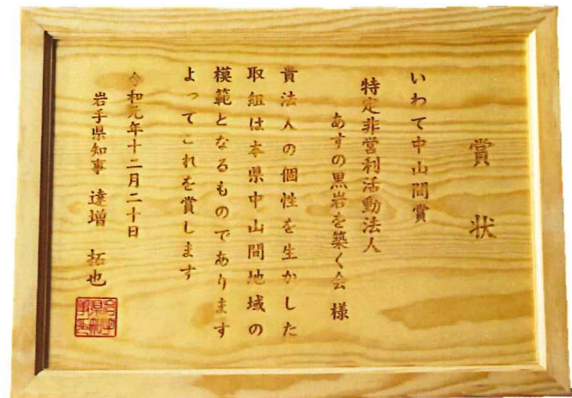 賞状
いわて中山間賞
特定非営利活動法人
あすの黒岩を築く会 様
貴法人の個性を生かした
取組は本県中山間地域の
模範となるものであります
よってこれを賞します
令和元年十二月二十日
岩手県知事 達増 拓也